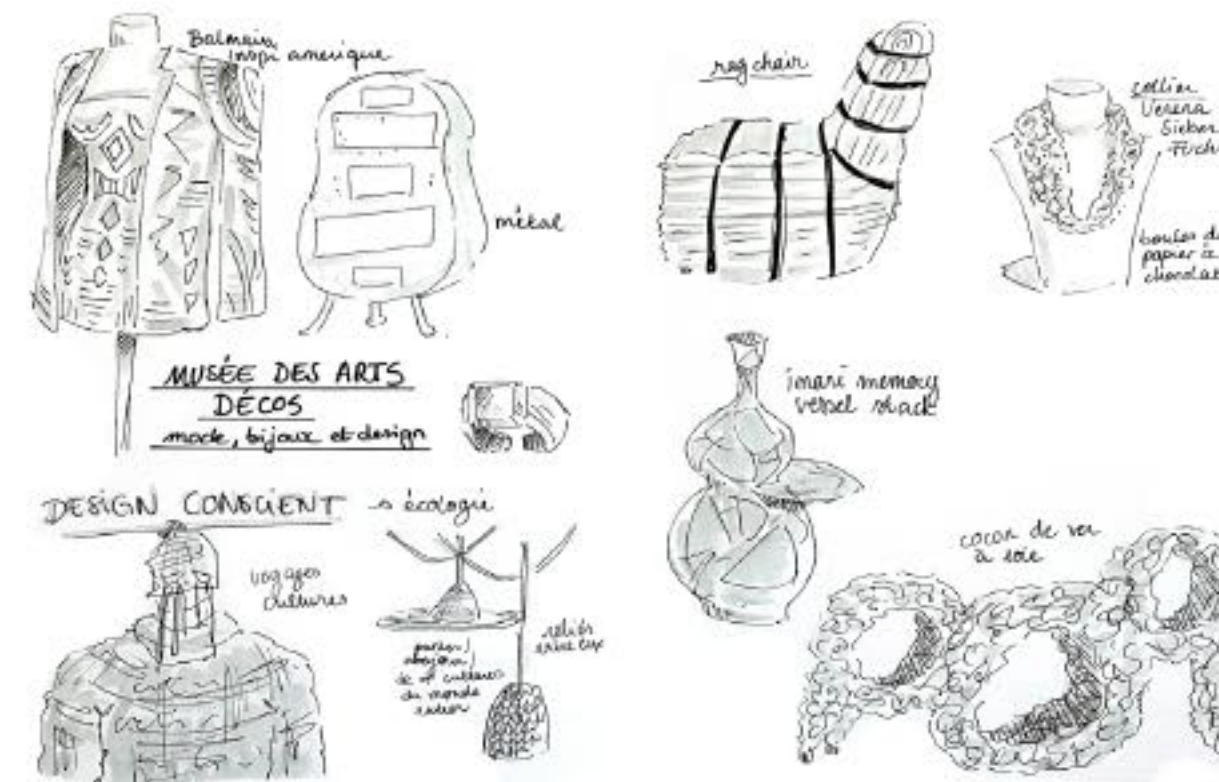 Balmain
inspi amerique
métal
MUSÉE DES ARTS
DÉCOS
mode, bijoux et design
DESIGN CONSCIENT
écologie
voyages
cultures
cultures
du monde
reliés
entre eux
rag chair
collier
Verena
Sieber
Fuchs
boules de
papier à
chocolat
imari memory
vessel stack
cocon de ver
à soie